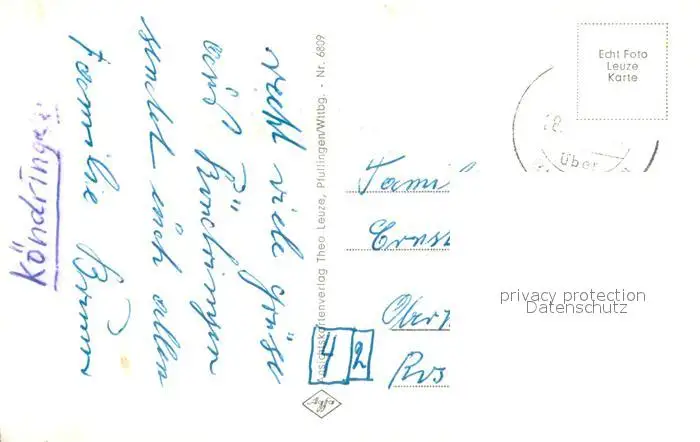 recht viele Grüße
aus Köndringen
sendet euch allen
Familie
Köndringen
Ansichtskartenverlag Theo Leuze, Pfullingen/Wttbg. - Nr. 6809
Agfa
42
Echt Foto
Leuze
Karte
Über
Famil
Ernst
Ober
privacy protection
Datenschutz